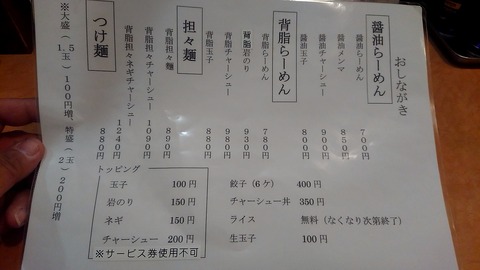 おしながき
醤油らーめん
醤油らーめん 700円
醤油メンマ 850円
醤油チャーシュー 900円
醤油玉子 800円
背脂らーめん
背脂らーめん 780円
背脂岩のり 930円
背脂チャーシュー 980円
背脂玉子 880円
担々麺
背脂担々麺 890円
背脂担々チャーシュー 1090円
背脂担々ネギチャーシュー 1240円
つけ麺 880円
※大盛(1.5玉)100円増、特盛(2玉)200円増
トッピング
玉子 100円
岩のり 150円
ネギ 150円
チャーシュー 200円
※サービス券使用不可
餃子(6ケ) 400円
チャーシュー丼 350円
ライス 無料(なくなり次第終了)
生玉子 100円